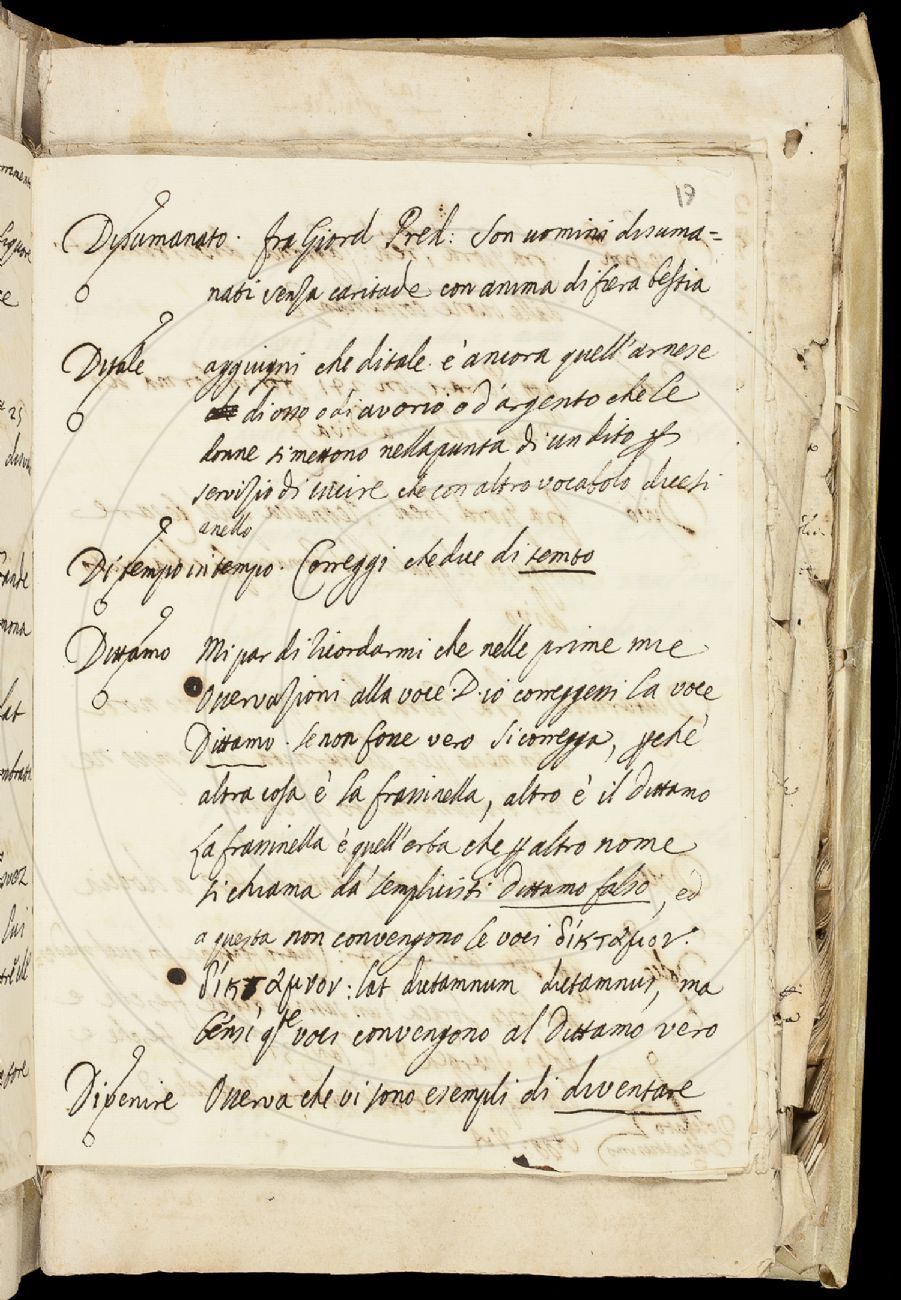 19
Disumanato. fra Giord Pred: Son uomini disuma=
nati senza caritade con anima di fiera bestia
Ditale aggiugni che ditale è ancora quell'arnese
di osso o di avorio o d'argento che le
donne si mettono nella punta di un dito
servizio di cucire che con altro vocabolo dicesi
anello
Di tempo in tempo. Correggi che dice di tembo
Dittamo Mi par di ricordarmi che nelle prime mie
Osservazioni alla voce D. io correggessi la voce
Dittamo. se non fosse vero si corregga, pche
altra cosa è la frassinella, altro è il Dittamo
La frassinella è quell'erba che p altro nome
si chiama da' semplicisti Dittamo falso, ed
a questa non convengono le voci δίκταμον.
δίκταμνον: lat dictamnum dictamnus, ma
bensì q.le voci convengono al Dittamo vero
Divenire Osserva che vi sono esempli di diventare